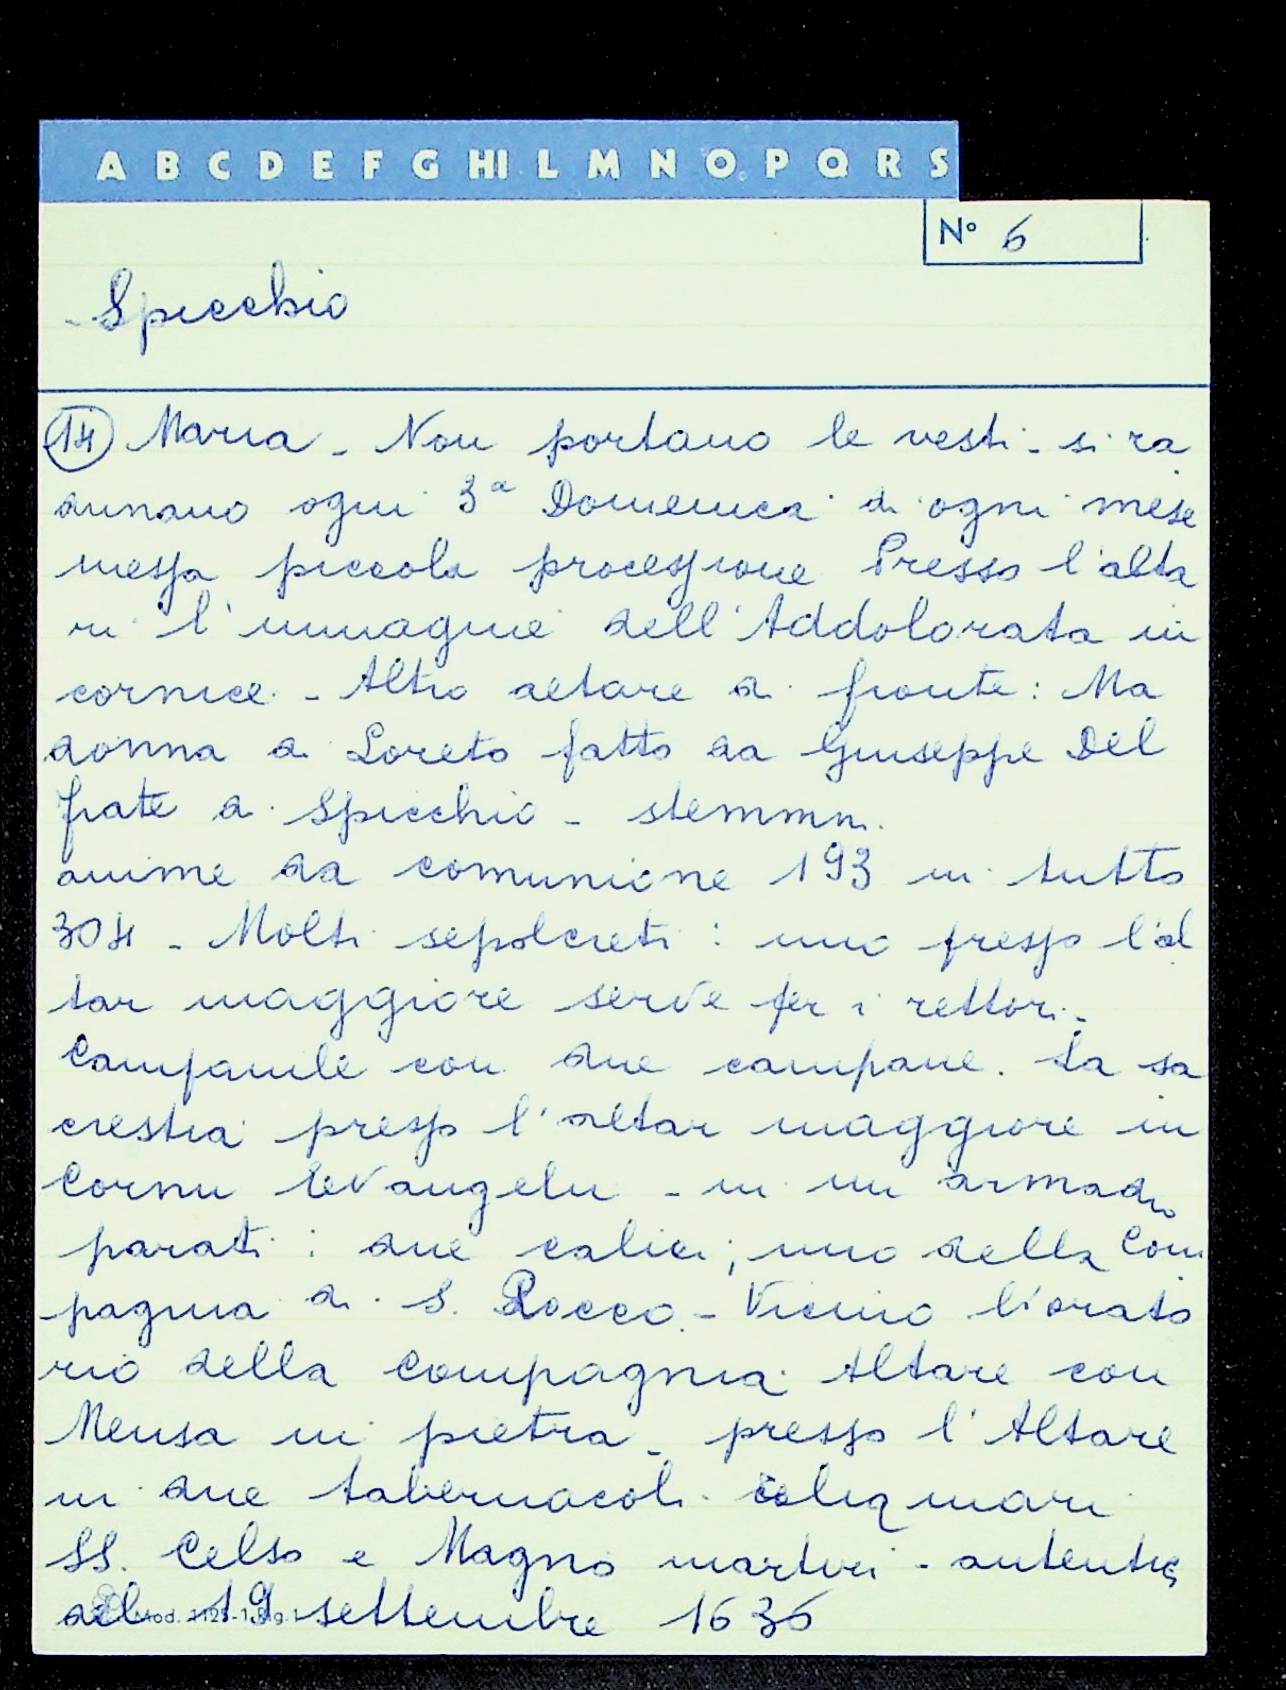 A B C D E F G HI L M N O P Q R S
N° 6
Specchio
14 Maria - Non portano le vesti - si ra
dunano ogni 3ª Domenica di ogni mese
messa piccola processione Presso l'alta
re l'immagine dell'Addolorata in
cornice - Altro altare di fronte: Ma
donna di Loreto fatto da Giuseppe Del
frate di Spicchio - stemma.
anime da comunione 193 in tutto
304 - Molti sepolcreti: uno presso l'al
tar maggiore serve per i rettori -
Campanile con due campane. La sa
crestia presso l'altar maggiore in
Cornu Evangelii - in un armadio
parati: due calici; uno della Com
pagnia di S. Rocco - Vicino l'orato
rio della Compagnia Altare con
Mensa in pietra - presso l'Altare
in due tabernacoli reliquiari
SS. Celso e Magno martiri - autentica
del 19 settembre 1636
Mod. 1129-1